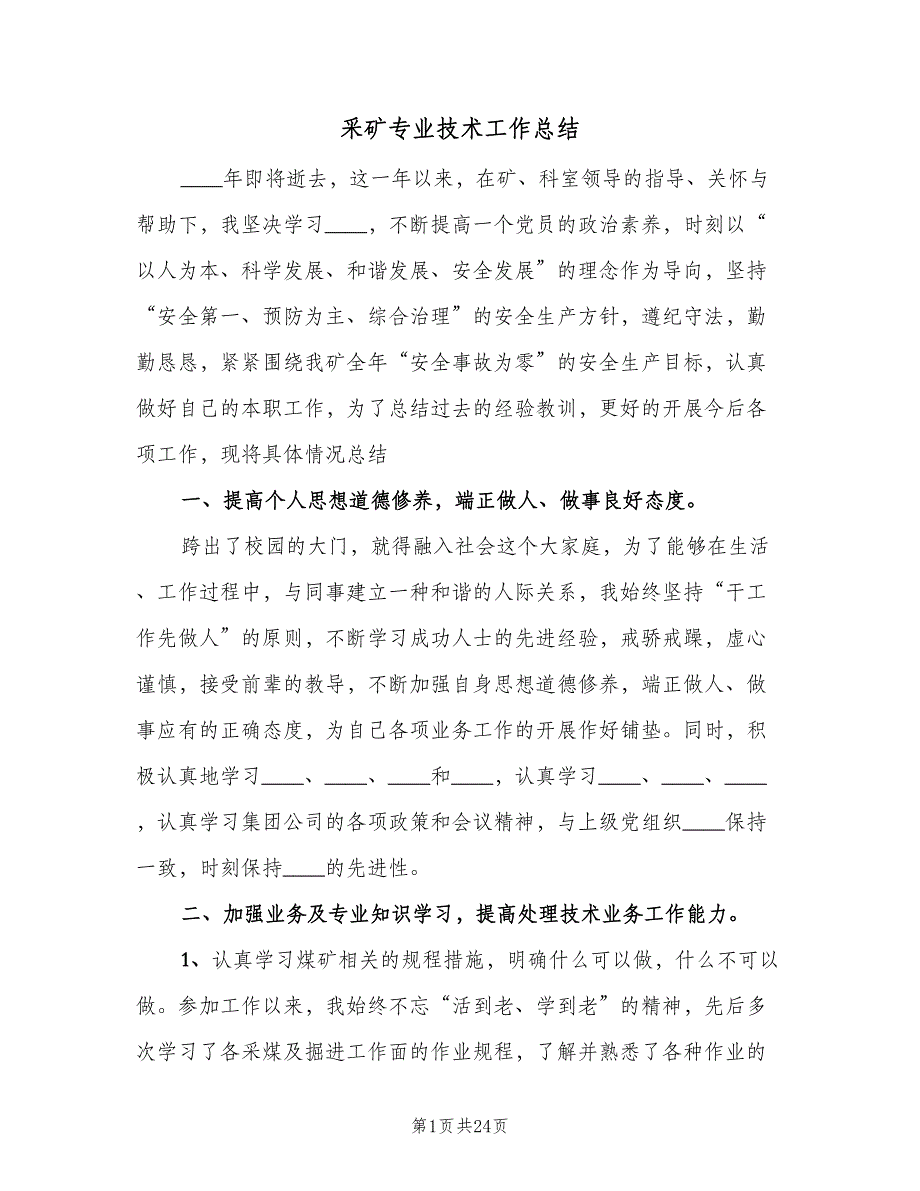 采矿专业技术工作总结
____年即将逝去，这一年以来，在矿、科室领导的指导、关怀与
帮助下，我坚决学习____，不断提高一个党员的政治素养，时刻以“
以人为本、科学发展、和谐发展、安全发展”的理念作为导向，坚持
“安全第一、预防为主、综合治理”的安全生产方针，遵纪守法，勤
勤恳恳，紧紧围绕我矿全年“安全事故为零”的安全生产目标，认真
做好自己的本职工作，为了总结过去的经验教训，更好的开展今后各
项工作，现将具体情况总结
一、提高个人思想道德修养，端正做人、做事良好态度。
跨出了校园的大门，就得融入社会这个大家庭，为了能够在生活
、工作过程中，与同事建立一种和谐的人际关系，我始终坚持“干工
作先做人”的原则，不断学习成功人士的先进经验，戒骄戒躁，虚心
谨慎，接受前辈的教导，不断加强自身思想道德修养，端正做人、做
事应有的正确态度，为自己各项业务工作的开展作好铺垫。同时，积
极认真地学习____、____、____和____，认真学习____、____、____
，认真学习集团公司的各项政策和会议精神，与上级党组织____保持
一致，时刻保持____的先进性。
二、加强业务及专业知识学习，提高处理技术业务工作能力。
1、认真学习煤矿相关的规程措施，明确什么可以做，什么不可以
做。参加工作以来，我始终不忘“活到老、学到老”的精神，先后多
次学习了各采煤及掘进工作面的作业规程，了解并熟悉了各种作业的
第1页共24页